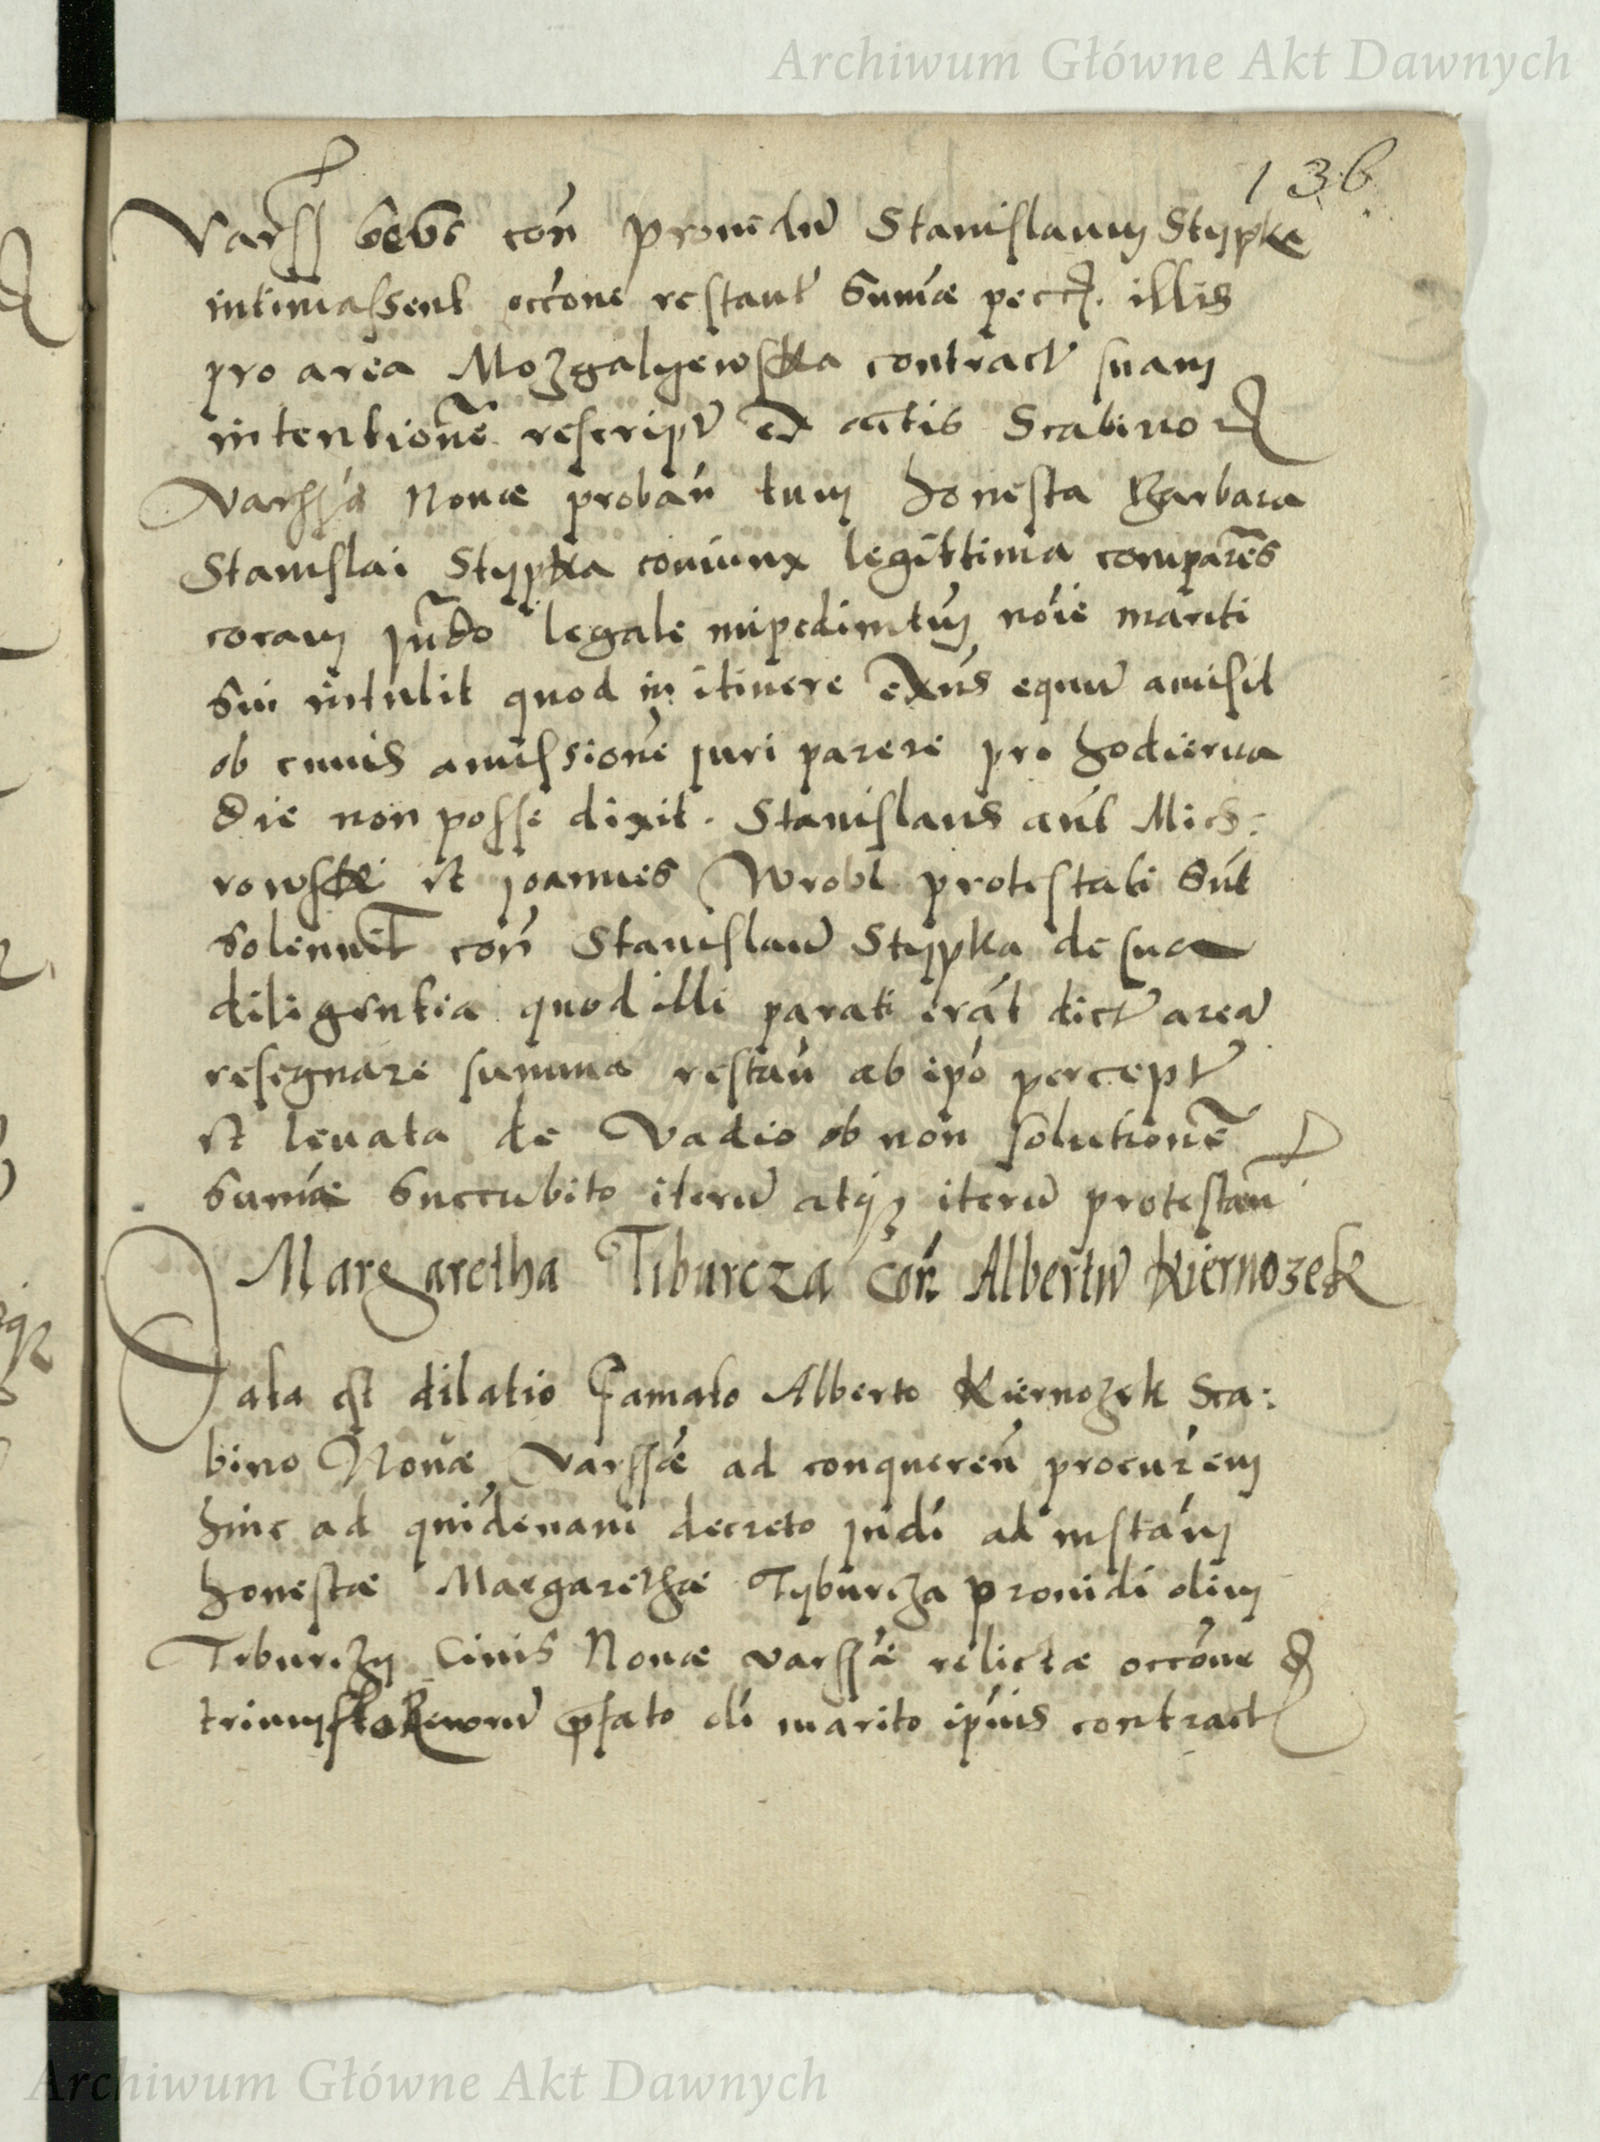 Archiwum Główne Akt Dawnych
136
Varss con̄ prouidū Stanislaum Stypka
intimassent occōne restant Sum̄æ pecc. illis
pro area Mozgalyewska contract suam
intentionē rescript ex actis Scabinor
Varss̄æ Nouæ proban̄ tum honesta Barbara
Stanislai Stypka coniunx legittima comparēs
coram Jūdo legale impedimtum nōie mariti
Sui intulit quod in itinere exn̄s equū amisit
ob cuuis amissionē iuri parere pro hodierna
die non posse dixit. Stanislaus aūt Mich:
rowski et Joannes Wrobl protestati Sūt
Solennit con̄ Stanislaū Stypka de sua
diligentia quod illi parati erāt dict areā
resegnare summa restan̄ ab ip̄o percept
et leuata de Vadio ob non solutionē
Sum̄æ Succubito iterū atq iterū protestan̄
Margaretha Tiburcza Con̄ Albertū Kiernozek
Data est dilatio Famato Alberto Kiernozek Sca:
bino Nouæ Varss̄æ ad conqueren̄ procur̄em
hinc ad quīdenam decreto Judī ad instān̄
honestæ Margarethæ Tyburcza prouidi olim
Tiburczy Ciuis Nouæ Varss̄æ relictæ occōne
trium pfato oli marito ip̄ius contract
Archiwum Główne Akt Dawnych